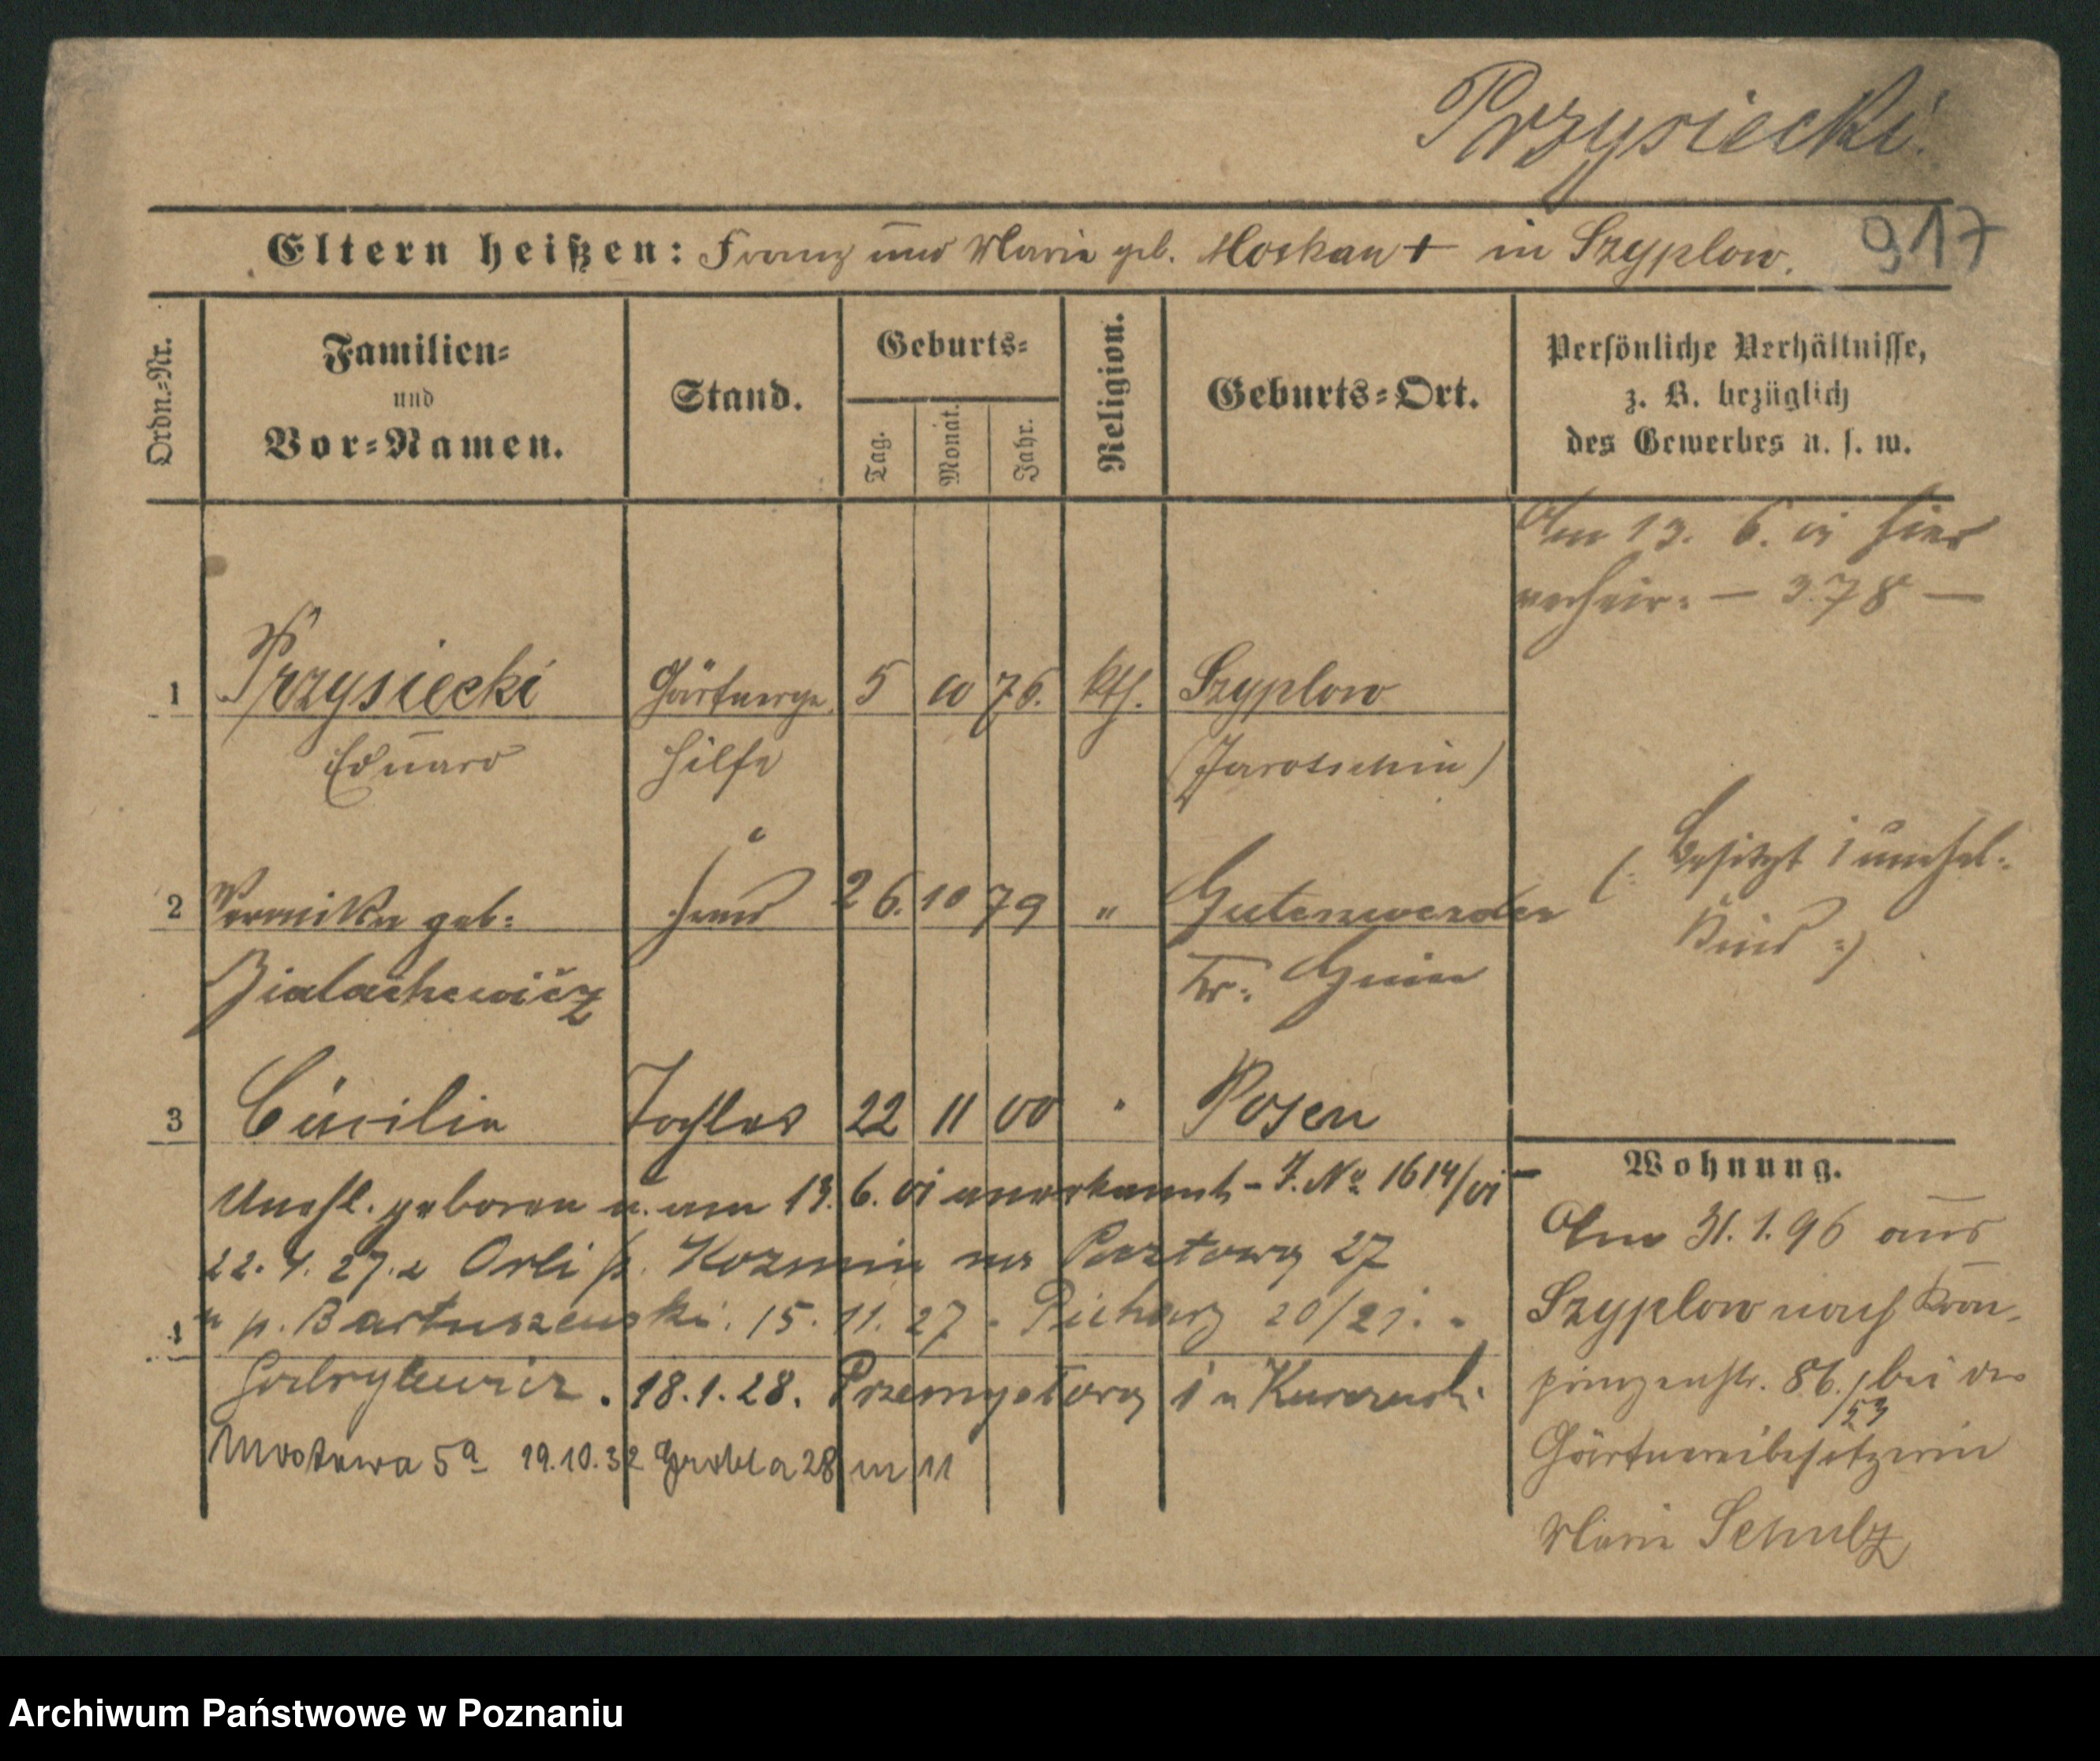 Przysiecki.
917
Eltern heißen: Franz und Maria geb. Moskau + in Szyplow.
Ordn.-Nr.
Familien-
und
Vor-Namen.
Stand.
Geburts-
Tag.
Monat.
Jahr.
Religion.
Geburts-Ort.
Persönliche Verhältnisse,
z. B. bezüglich
des Gewerbes u. s. w.
Am 13. 6. 01 hier
verheir. — 378 —
1 Przysiecki Gärtnerge 5 10 76. kth. Szyplow
Eduard hilfe (Jarotschin)
2 Veronika geb: 26. 10 79 " Gutenwerder
Bialachewicz Kr. Gnin
(: Besitzt 1 unehel.
Kind :)
3 Cäcilie Tochter 22 11 00 " Posen
Unehl. geboren u. am 13. 6. 01 anerkannt - J. No 1614/01 -
22. 4. 27. z Orli p. Kozmin na Pocztową 27
u p. Bartuszewski. 15. 11. 27 - Piekary 20/21. -
4
18. 1. 28. Przemysłową 1 u
Mostowa 5a 19.10.32 Grobla 28 m 11
Wohnung.
Am 31. 1. 96 aus
Szyplow nach Kron-
prinzenstr. 86./53 bei der
Gärtnereibesitzerin
Maria Schulz
Archiwum Państwowe w Poznaniu